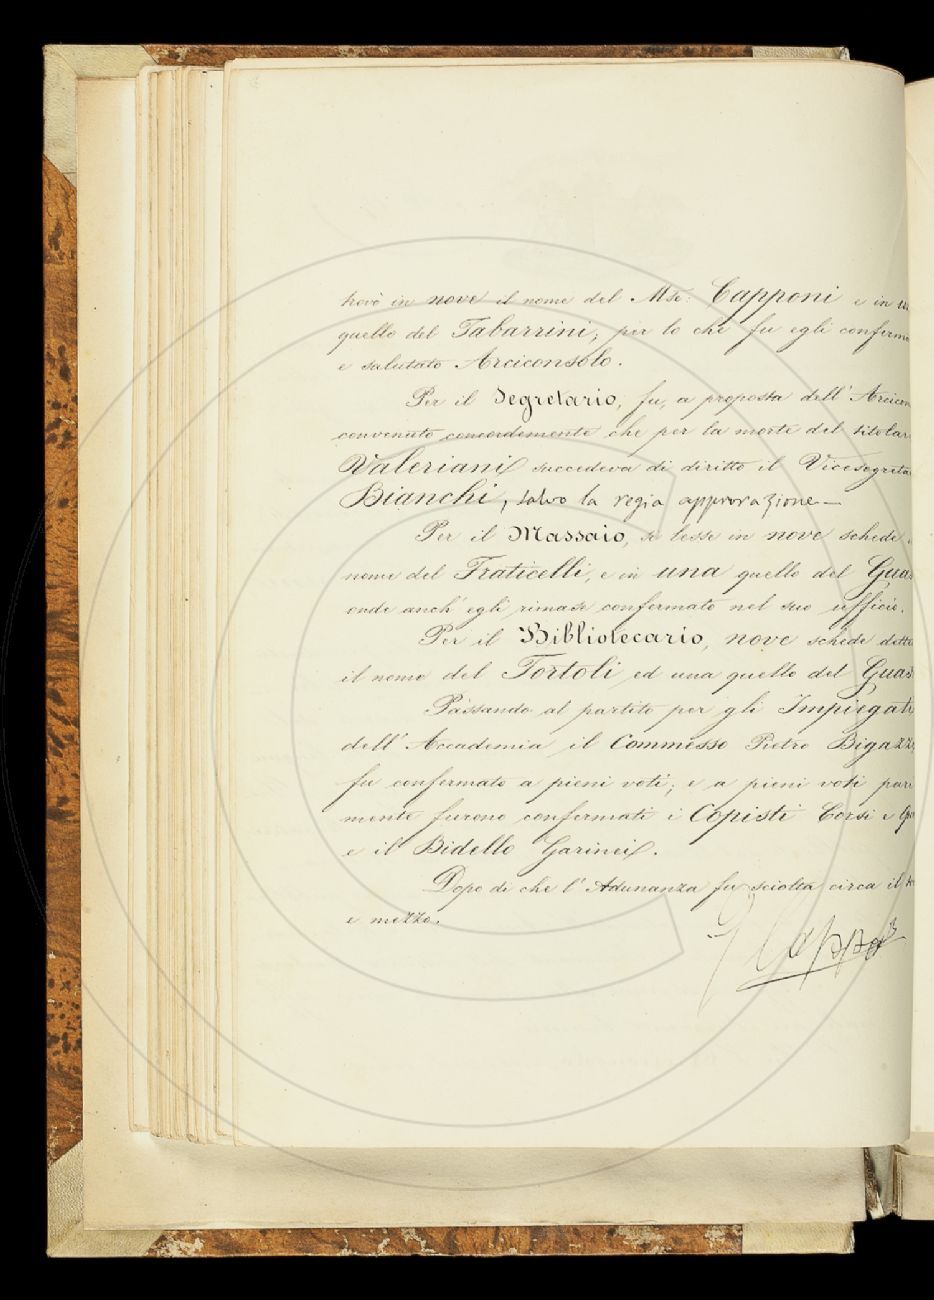 trovò in nove il nome del Mse. Capponi e in u
quello del Tabarrini; per lo che fu egli conferma
e salutato Arciconsolo.
Per il Segretario, fu, a proposta dell' Arcicon
convenuto concordemente che per la morte del titolar
Valeriani succedeva di diritto il Vicesegreta
Bianchi, salvo la regia approvazione —
Per il Massaio, se lesse in nove schede i
nome del Fraticelli, e in una quello del Guas
onde anch' egli rimase confermato nel suo ufficio.
Per il Bibliotecario, nove schede dette
il nome del Tortoli ed una quello del Guas
Passando al partito per gli Impiegati
dell' Accademia il Commesso Pietro Bigazzi
fu confermato a pieni voti; e a pieni voti pari
mente furono confermati i Copisti Corsi e
e il Bidello Garinei.
Dopo di che l' Adunanza fu sciolta circa il
e mezzo.
G Capponi